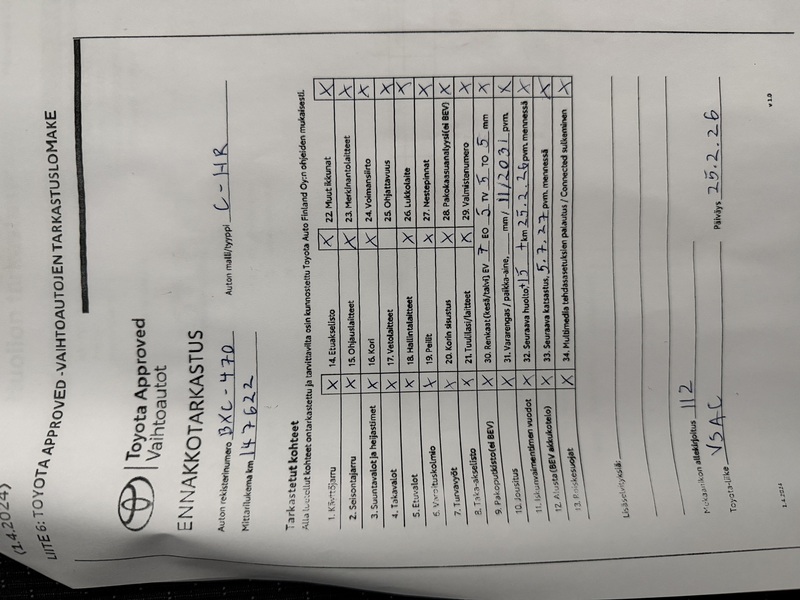 (1.4.2024)
LIITE 6: TOYOTA APPROVED -VAIHTOAUTOJEN TARKASTUSLOMAKE
Toyota Approved
Vaihtoautot
ENNAKKOTARKASTUS
Auton rekisterinumero BXC-470 Auton malli/tyyppi C-HR
Mittarilukema km 147622
Tarkastetut kohteet
Alla luetellut kohteet on tarkastettu ja tarvittavilta osin kunnostettu Toyota Auto Finland Oy:n ohjeiden mukaisesti.
1. Käyttöjarru X 14. Etuakselisto X 22. Muut ikkunat X
2. Seisontajarru X 15. Ohjauslaitteet X 23. Merkinantolaitteet X
3. Suuntavalot ja heijastimet X 16. Kori X 24. Voimansiirto X
4. Takavalot X 17. Vetolaitteet 25. Ohjattavuus X
5. Etuvalot X 18. Hallintalaitteet X 26. Lukkolaite X
6. Varoituskolmio X 19. Peilit X 27. Nestepinnat X
7. Turvavyöt X 20. Korin sisustus X 28. Pakokaasuanalyysi(ei BEV) X
8. Taka-akselisto X 21. Tuulilasi/laitteet X 29. Valmistenumero X
9. Pakoputkisto(ei BEV) X 30. Renkaat (kesä/talvi) EV 7 EO 5 TV 5 TO 5 mm X
10. Jousitus X 31. Vararengas / paikka-aine, mm / 11/2031 pvm. X
11. Iskunvaimentimen vuodot X 32. Seuraava huolto, +15 tkm 25.2.26 pvm. mennessä X
12. Alusta (BEV akkukotelo) X 33. Seuraava katsastus, 5.7.27 pvm. mennessä X
13. Roiskesuojat X 34. Multimedia tehdasasetuksien palautus / Connected sulkeminen X
Lisäselvityksiä:
Mekaanikon allekirjoitus 112
Toyota-liike VSAC Päiväys 25.2.26
1.4.2024 v 1.0